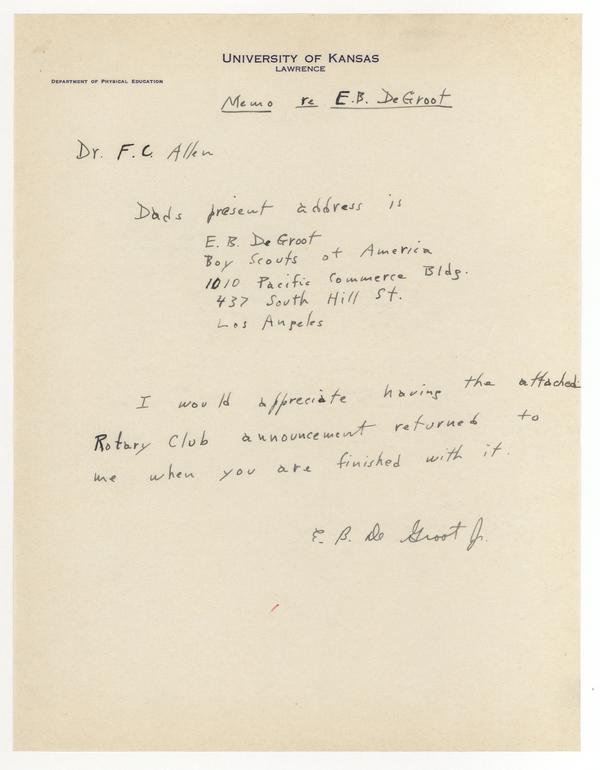 UNIVERSITY OF KANSAS
LAWRENCE
DEPARTMENT OF PHYSICAL EDUCATION
Memo re E.B. DeGroot
Dr. F.C. Allen
Dads present address is
E. B. DeGroot
Boy Scouts of America
1010 Pacific Commerce Bldg.
437 South Hill St.
Los Angeles
I would appreciate having the attached
Rotary Club announcement returned to
me when you are finished with it.
E. B. De Groot Jr.